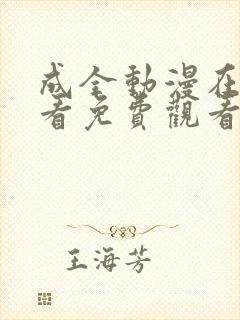 成全動漫在
看免費觀看
王海芳